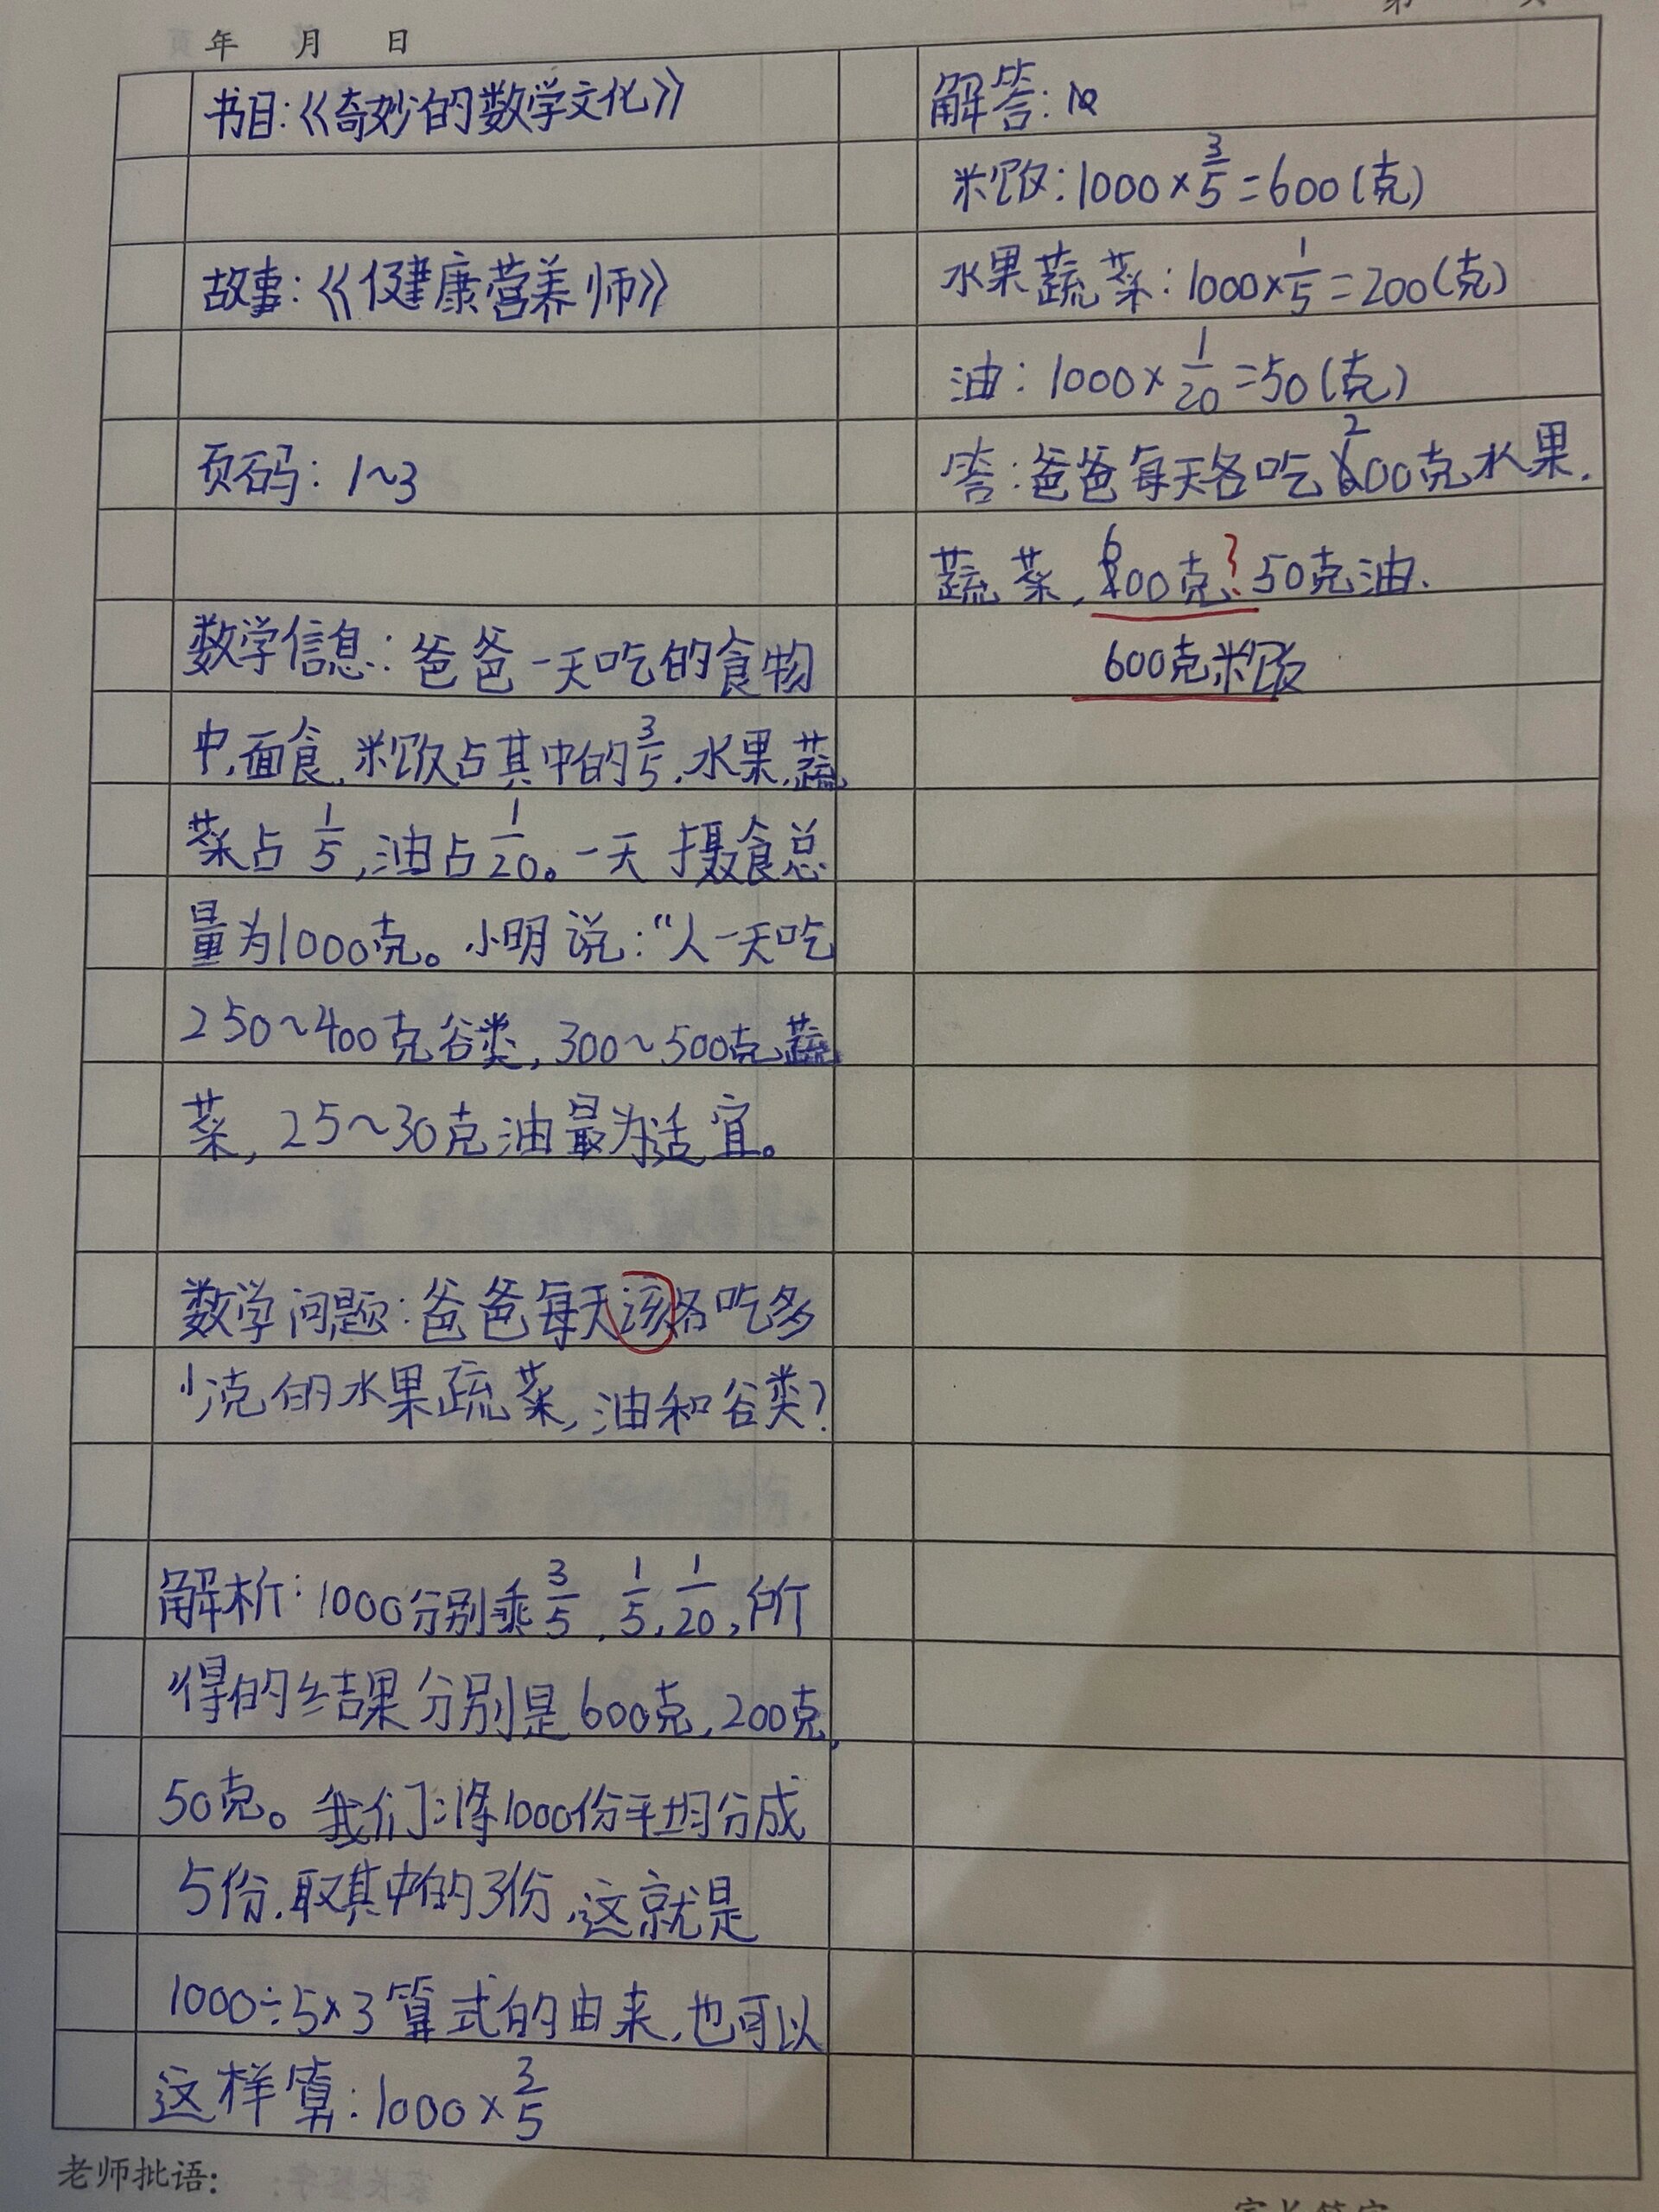 年 月 日
书目:《奇妙的数学文化》
故事:《健康营养师》
页码: 1~3
数学信息: 爸爸一天吃的食物
中,面食,米饭占其中的3/5,水果,蔬
菜占1/5,油占1/20。一天摄食总
量为1000克。小明说:“人一天吃
250~400克谷类,300~500克蔬
菜,25~30克油最为适宜。
数学问题:爸爸每天该各吃多
少克的水果蔬菜,油和谷类?
解析:1000分别乘3/5,1/5,1/20,所
得的结果分别是600克,200克,
50克。我们将1000份平均分成
5份,取其中的3份,这就是
1000÷5×3算式的由来,也可以
这样算:1000×3/5
老师批语:
解答:
米饭:1000×3/5=600(克)
水果蔬菜:1000×1/5=200(克)
油:1000×1/20=50(克)
答:爸爸每天各吃200克水果.
蔬菜,600克?50克油.
600克米饭